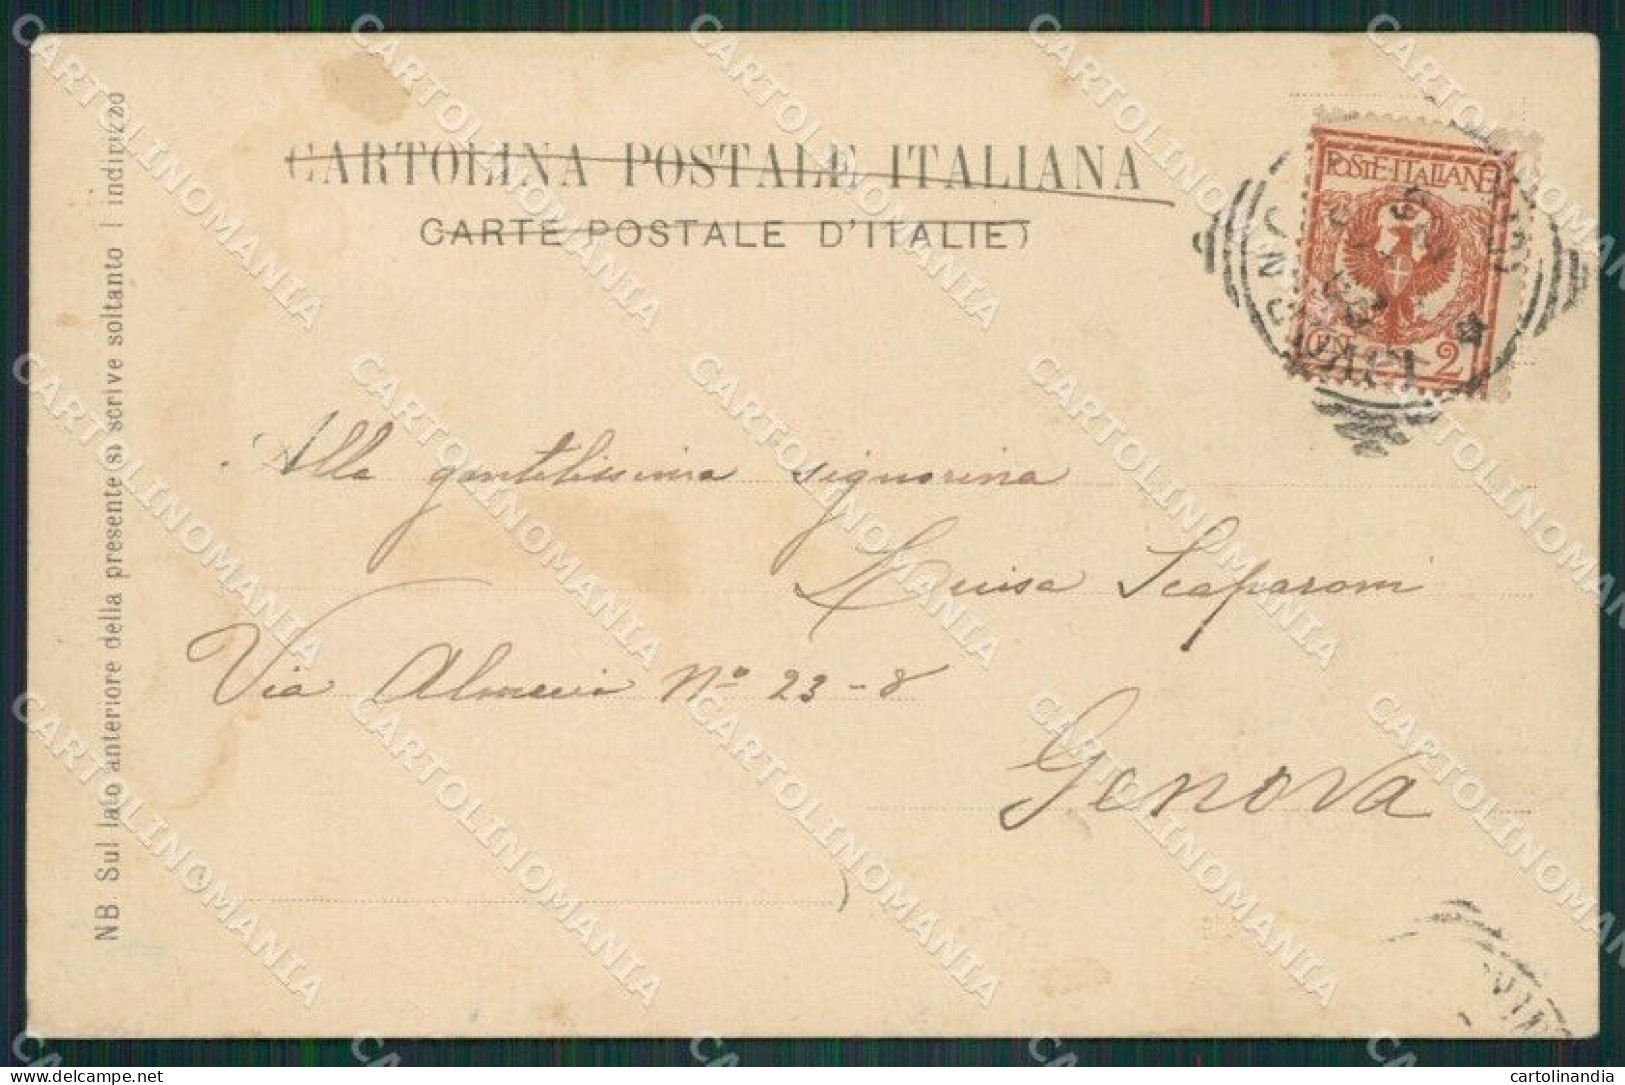 CARTOLINA POSTALE ITALIANA
CARTE POSTALE D'ITALIE)
NB Sul lato anteriore della presente (s) scrive soltanto l indirizzo
POSTE·ITALIANE
2
Alla gentilissima signorina
Luisa Scaparoni
Via Almeria Nº 23-8
Genova
CARTOLINOMANIA
cartolinandia